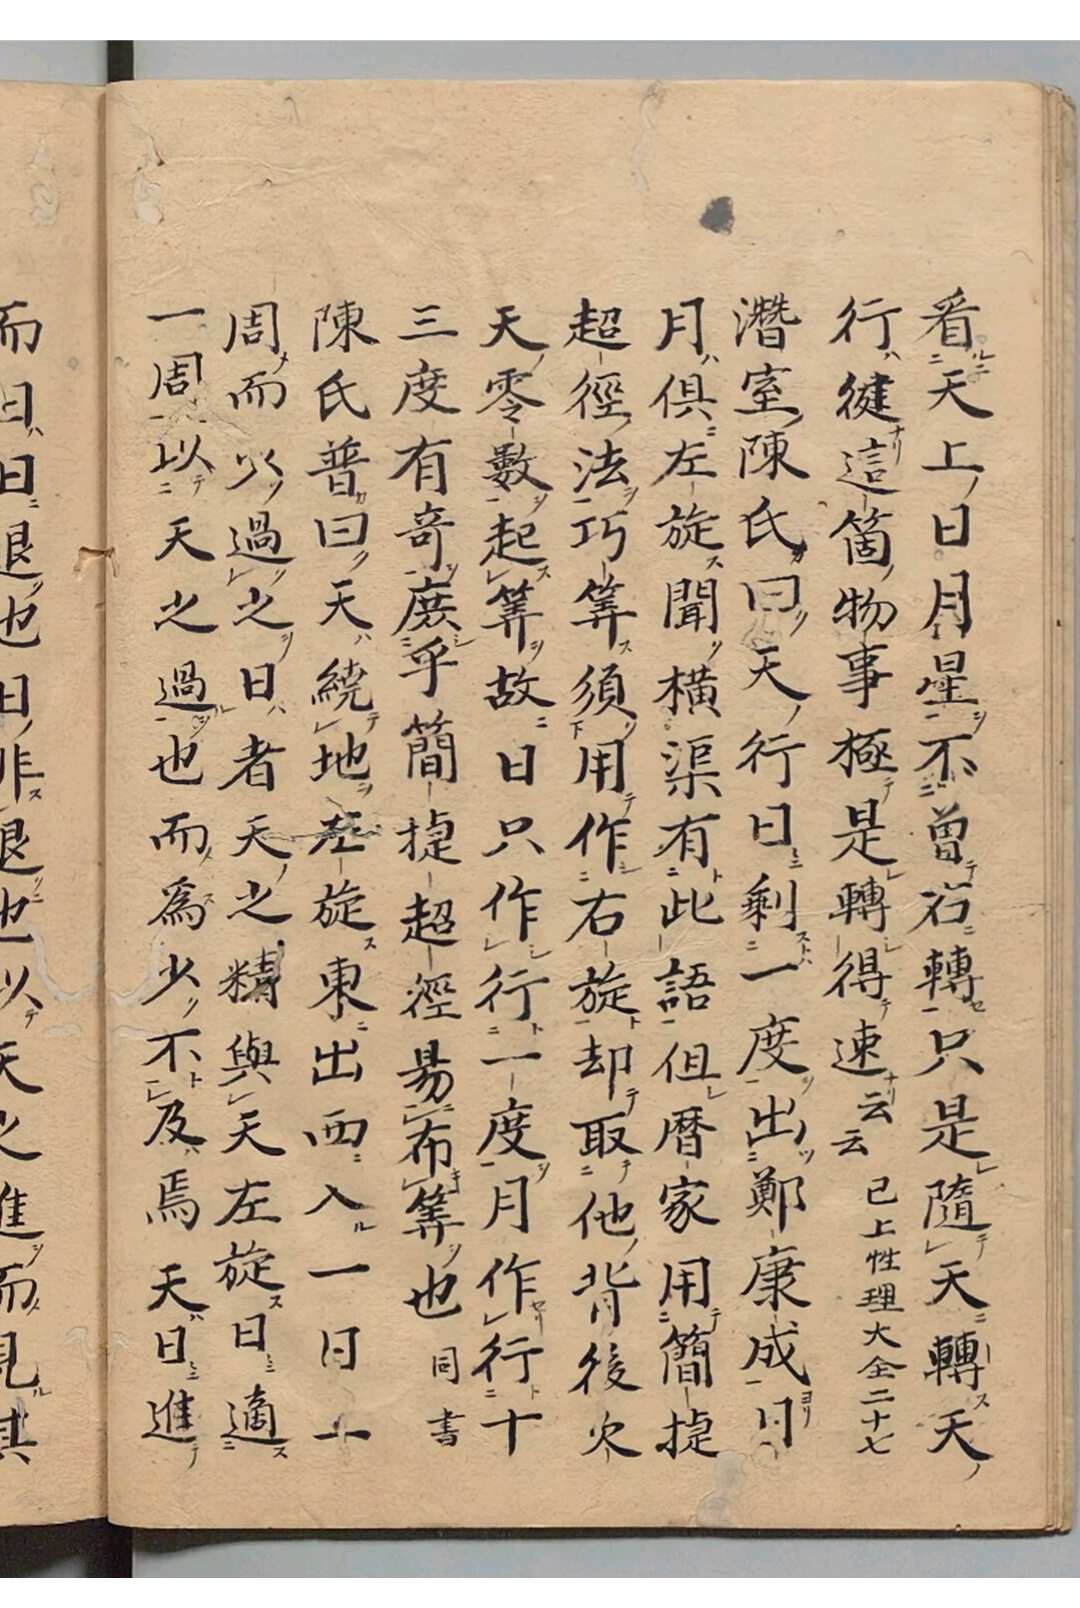 看天上日月星不曾右轉只是隨天轉天
行健這箇物事極是轉得速云云 已上性理大全二十七
潛室陳氏曰天行日剩一度出鄭康成日
月俱左旋聞橫渠有此語但曆家用簡捷
超徑法巧筭須用作右旋却取他背後欠
天零數起筭故日只作行一度月作行十
三度有奇庶乎簡捷超徑易布筭也 同書
陳氏普曰天繞地左旋東出西入一日一
周而少過之日者天之精與天左旋日適
一周以天之過也而為少不及焉天日進
而日日退也日非退也以天之進而見其